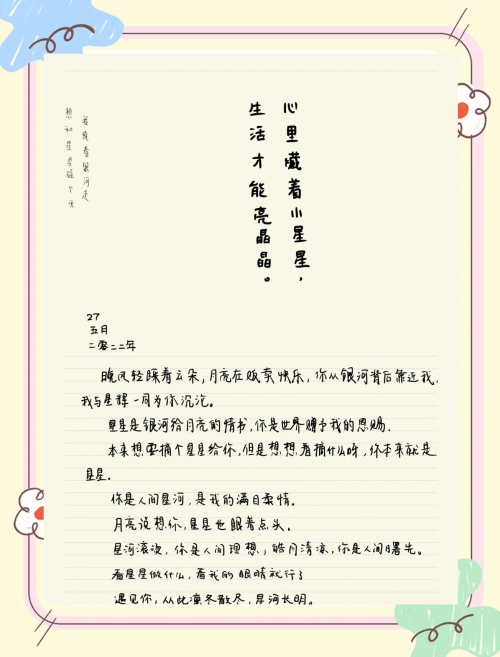 心里藏着小星星，
生活才能亮晶晶。
我绕着银河走
想和星星碰个头
27
五月
二零二二年
晚风轻踩着云朵,月亮在贩卖快乐,你从银河背后靠近我,
我与星辉一同为你沉沦。
星星是银河给月亮的情书,你是世界赠予我的恩赐.
本来想要摘个星星给你,但是想想,看摘什么呀,你本来就是
星星.
你是人间星河,是我的满目柔情。
月亮说想你,星星也眼着点头。
星河滚烫,你是人间理想;皓月清凉,你是人间曙光。
看星星做什么,看我的眼睛就行了
遇见你,从此凛冬散尽,星河长明。